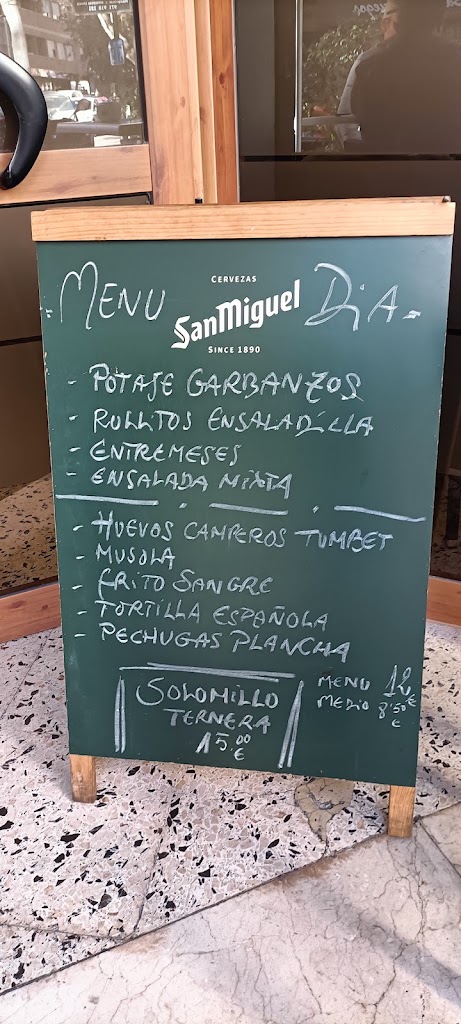 MENU DIA
CERVEZAS
SanMiguel
SINCE 1890
- POTAJE GARBANZOS
- ROLLITOS ENSALADILLA
- ENTREMESES
- ENSALADA MIXTA
- HUEVOS CAMPEROS TUMBET
- MUSOLA
- FRITO SANGRE
- TORTILLA ESPAÑOLA
- PECHUGAS PLANCHA
SOLOMILLO
TERNERA
15.00
€
MENU 12€
MEDIO 8'50
€